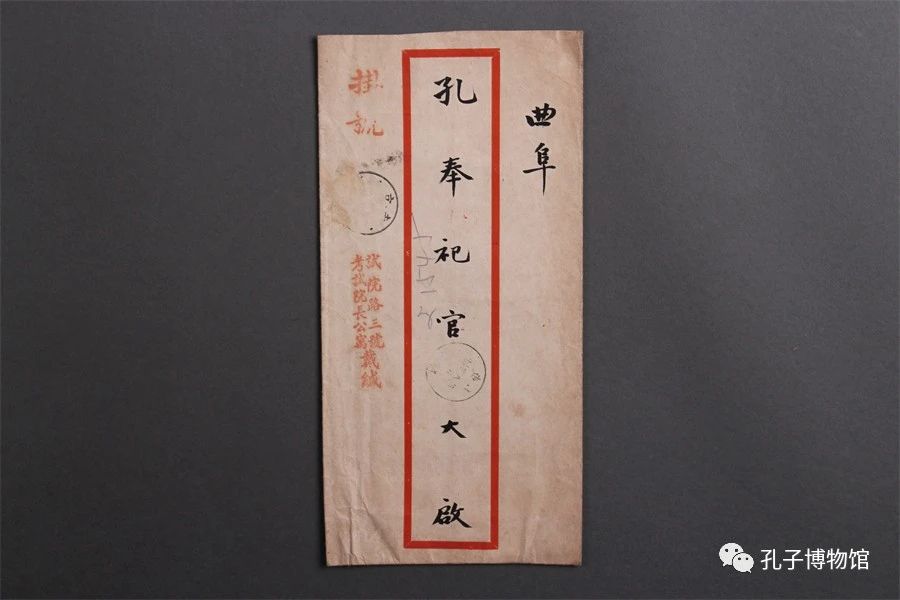 曲阜
孔奉祀官大啟
掛號
試院路三號
考試院長公寓戴緘
孔子博物馆